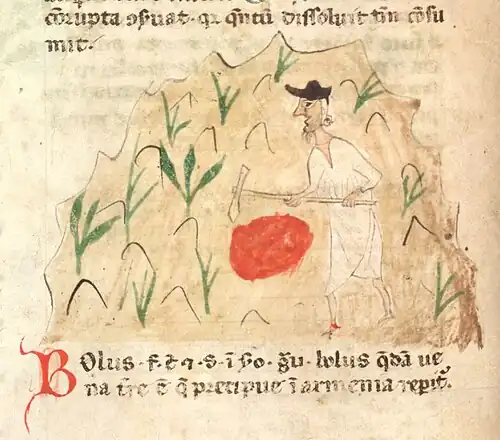 corupta ɔſuat. qr q̃ntũ diſſoluit tm̃ cõſu
mit.
Bolus. f. ē ⁊. s. ĩ g̃u. bolus q̃dã ue
na tr̃e ē q̃ precipue ĩ armenia repit᷑.